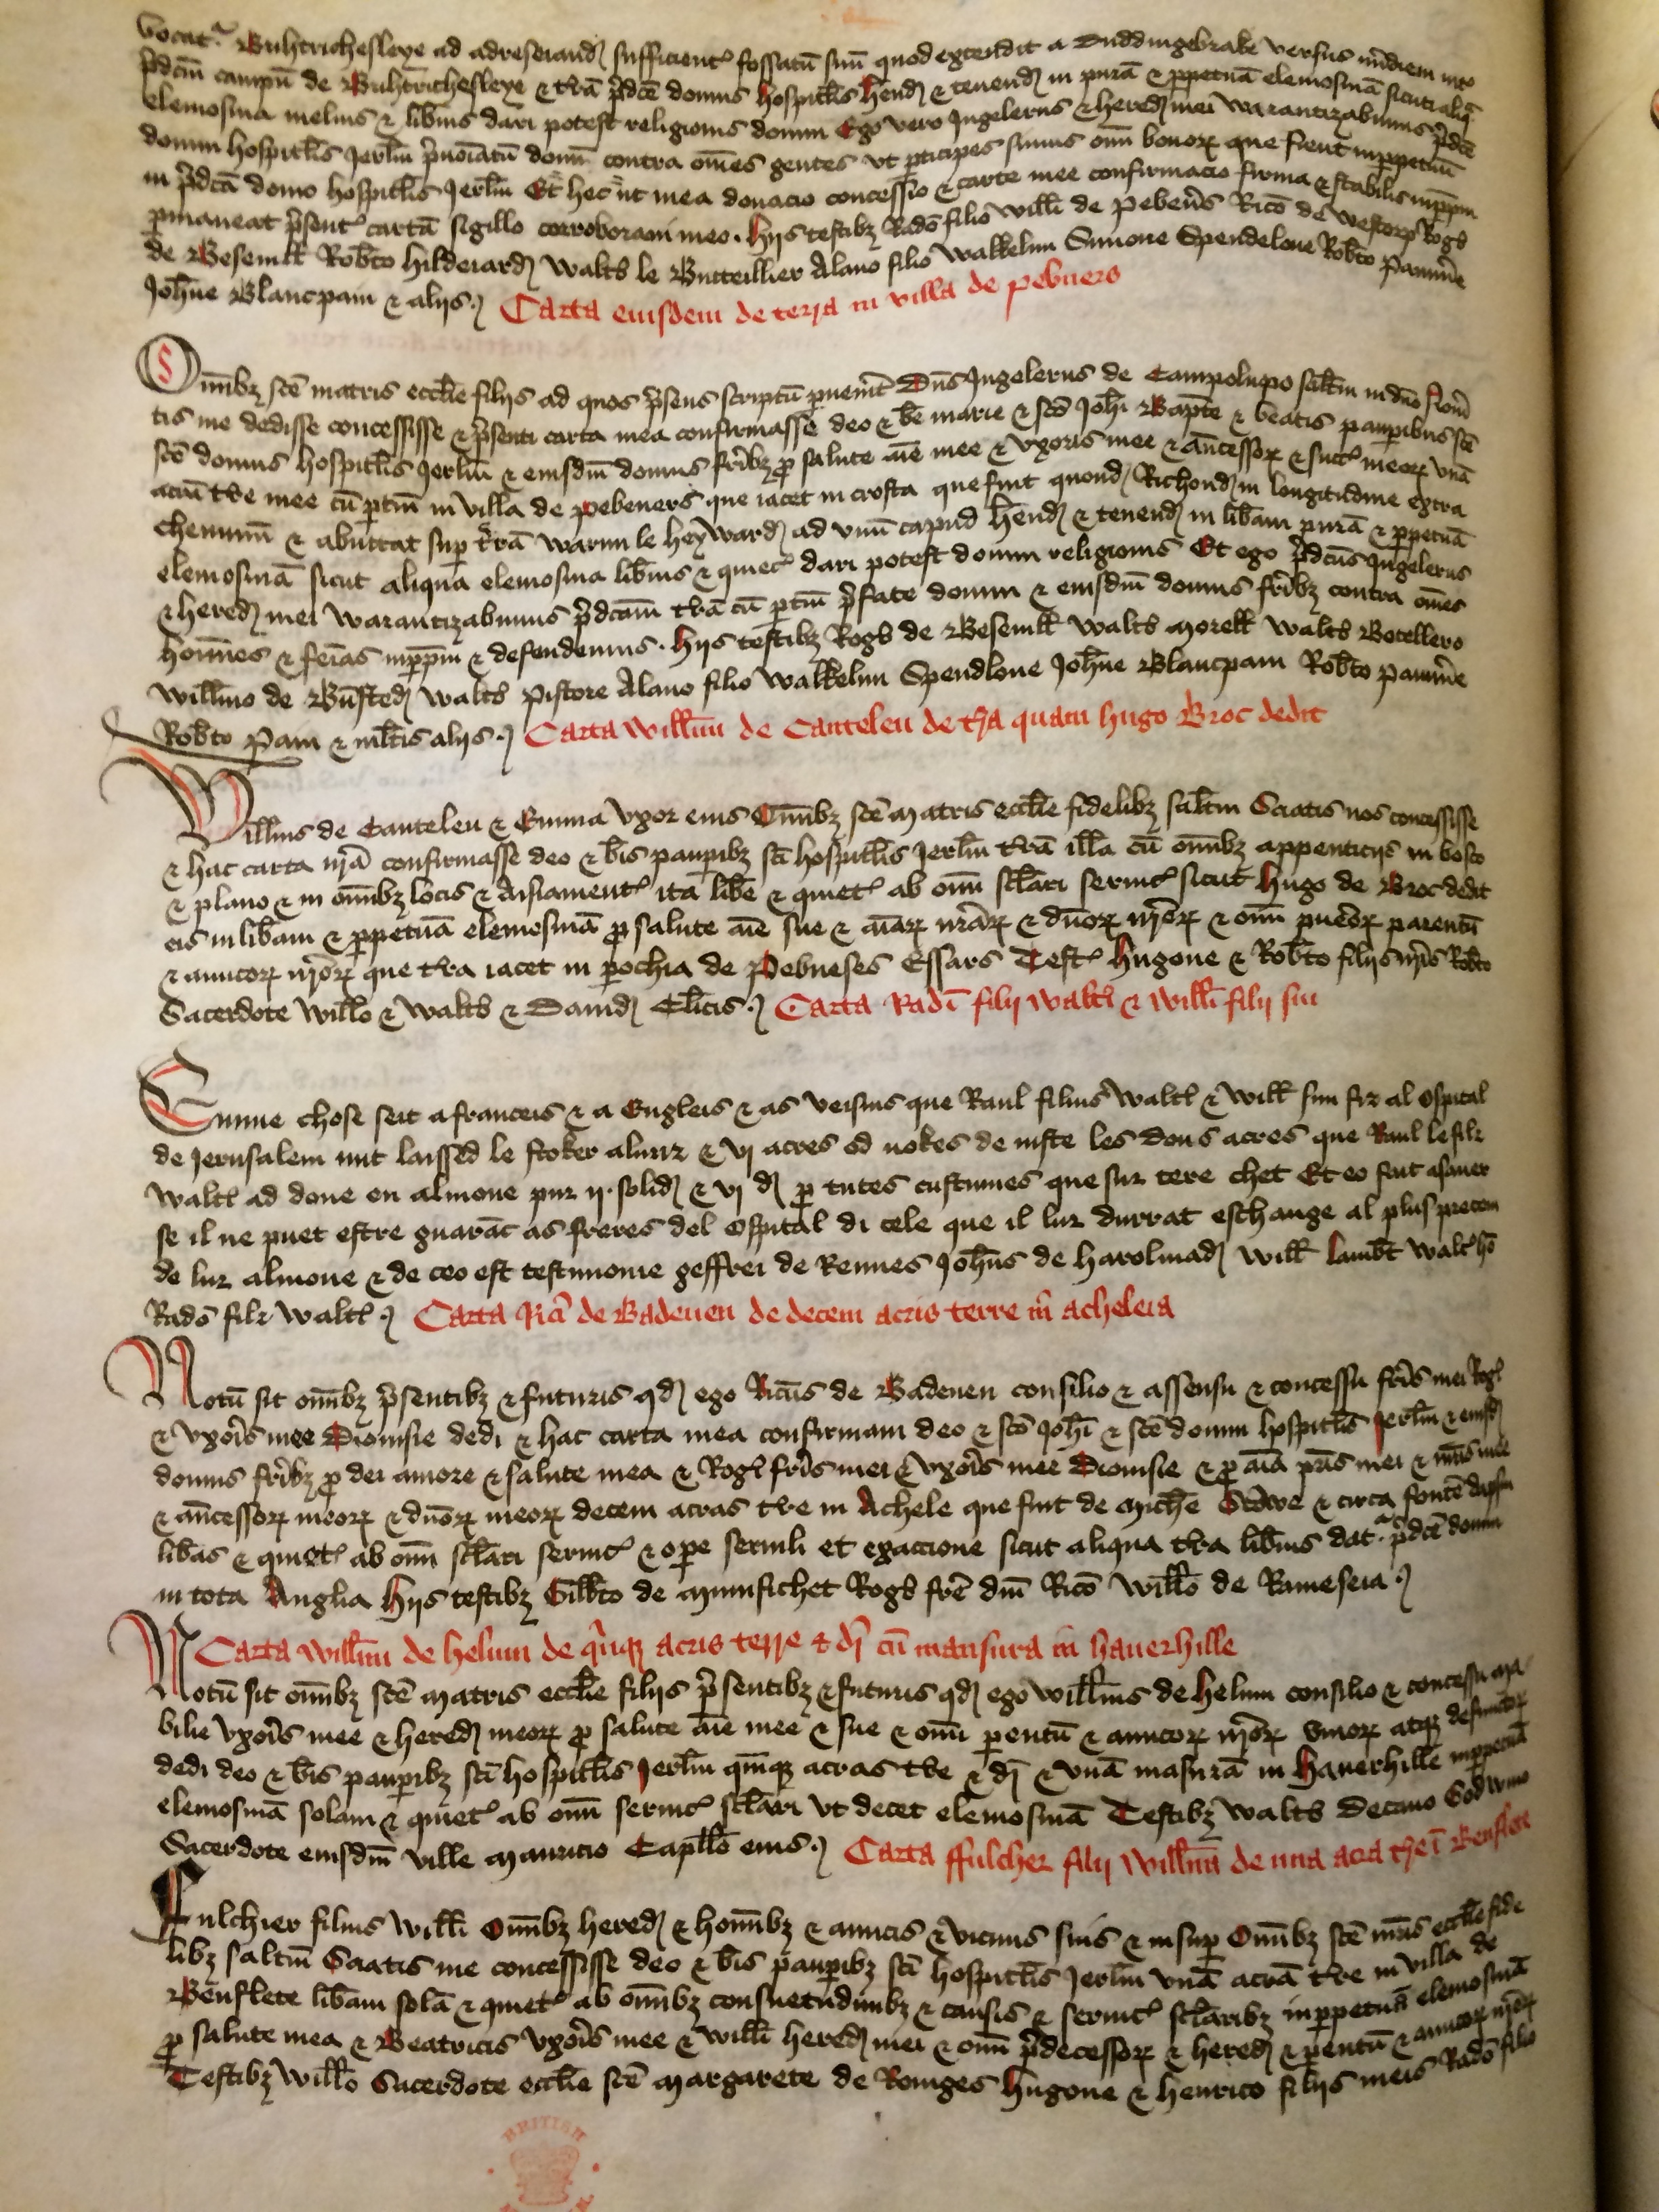 vocat᷑ Buhtrichesleye ad adresciand̛ sufficient᷑ fossatū suū quod extendit a Duddingebrake versus m̄idiem int̛
p̄dcm̄ campū de Buhtrichesleye & tr̄ā p̄dcē domus hospitt̄is hend̛ & tenend̛ in purā & ꝑpetuā elemosinā sicut aliq̄
elemosina melius & lib̄ius dari potest religionis domui Ego vero Ingelerus & hered̛ mei warantizabimus p̄dcē
domui hospitt̄is Jerlm̄ p̄noīatū donū contra om̄es gentes vt ꝑticipes simus om̄i bonoꝝ que fient inꝑpetuū
in p̄dcā domo hospitt̄is Jerlm̄ Et hec ut mea donacio concessio & carte mee confirmacio firma & stabilis inꝑpm̄
ꝑmaneat p̄sent᷑ cartā sigillo corroboraui meo . hijs testibȝ Radō filio Witti de Pebeners Ricō de Westorp Rog̛o
de Besemitt Rob̄to Hildeiard̛ Walt̛o le Butteillier Alano filio Walkelin Simone Spendeloue Rob̄to Pannir̄e
Joh̄ne Blancpain & alijs .
Carta eiusdem de terra in villa de pebners
Om̄ibȝ scē matris eccl̄ie filijs ad quos p̄sens scriptū ꝑuen̄it Dn̄s Ingelerus de Campolupo sal̄tm in dn̄o
tis me dedisse concessisse & p̄senti carta mea confirmasse deo & bē marie & scō Joh̄i Bap̄te & beatis pauꝑibus scē
scē domus hospitt̄is Jerlm̄ & eiusdm̄ domus fr̄ibȝ ꝓ salute aīe mee & vxoris mee & an̄cessoꝝ & succ᷑ meoꝝ vnā
acrā tr̄e mee cū ꝑtin̄ in villa de Pebeners que iacet in crofta que fuit quond̛ Richond̛ in longitudine extra
cheminū & abuttat sup tr̄ā Warini le heyward̛ ad vnū capud hend̛ & tenend̛ in lib̄am purā & ꝑpetuā
elemosinā sicut aliqua elemosina lib̄ius & quiec᷑ dari potest domui religionis Et ego p̄dcūs Ingelerus
& hered̛ mei warantizabimus p̄dcam̄ tr̄ā cū ꝑtin̄ p̄fate domui & eiusdm̄ domus fr̄ibȝ contra om̄es
hoīnes & feīas inꝑpm̄ & defendemus . hijs testibȝ Rog̛o de Besemitt Walt̛o Morett Walt̛o Botellero
Willm̄o de Būsted̛ Walt̛o Pistore Alano filio Walkelin Spendloue Joh̄ne Blancpain Rob̄to Pannir̄e
Rob̄to Pain & mltis alijs .
Carta Willm̄i de Canteleu de tr̄a quam hugo Broc dedit
Willms de Canteleu & Emma vxor eius Om̄ibȝ scē Matris eccl̄ie fidelibȝ sal̄tm Sciatis nos concessisse
& hac carta nr̄ā confirmasse deo & bīs pauꝑibȝ scī hospitt̄is Jerlm̄ tr̄ā illā cū om̄ibȝ appenticijs in bosco
& plano & in om̄ibȝ locis & Aisiament᷑ ita lib̄e & quiet᷑ ab om̄i sclāri seruic᷑ sicut hugo de Broc dedit
eis in lib̄am & ꝑpetuā elemosinā ꝓ salute aīe sue & aīaꝝ nr̄aꝝ & dn̄oꝝ nr̄oꝝ & om̄i pueroꝝ parentū
& amicoꝝ nr̄oꝝ que tr̄a iacet in ꝑochia de Pebneses Essars Test᷑ hugone & Rob̄to filijs nr̄is Rob̄to
Sacerdote Willo & Walt̛o & Dauid̛ Cl̄icis .
Carta Radī filij walt̛i & willi filij sui
Cunue chose seit a franceis & a Engleis & as veisins que Raul filius Walt̛i & Witt sun fiz al Ospital
de Jerusalem unt laissed le stoker aluriz & vj acres od nokes de iuste les dous acres que Raul le filz
Walt̛i ad done en almone pur ij . solid̛ & vj d̛ ꝑ tutes custumes que sur tere chet Et eo fait asauer
se il ne puet estre guarāt as freres del Ospital di cele que il lur durrat eschange al plus precein
de lur almone & de ceo est testimonie Geffrei de Rennes Joh̄us de Harolmad̛ Witt Lamb̄t Walt̛
Radō filz Walt̛i .
Carta Rici̛ de Badeuen de decem acris terre in acheleia
Notū sit om̄ibȝ p̄sentibȝ & futuris qd̛ ego Ricūs de Badeuen consilio & assensu & concessu fr̄is mei Rog̛i
& vxor̄is mee Dionisie dedi & hac carta mea confirmaui deo & scō Joh̄i & scē domui hospitt̄is Jerlm̄ & eiusd̛
domus fr̄ibȝ ꝓ dei amore & salute mea & Rog̛i fr̄is mei & vxor̄is mee Dionisie & ꝓ aīa pr̄is mei & mr̄is mee
& an̄cessoꝝ meoꝝ & dn̄oꝝ meoꝝ decem acras tr̄e in Achele que fuit de Mich̄e Stowe & circa fontē
lib̄as & quiet᷑ ab om̄i sclāri seruic᷑ & oꝑe seruili et exaccione sicut aliqua tr̄a lib̄ius dat᷑ p̄dcē domui
in tota Anglia hijs testibȝ Gilb̄to de Munfichet Rog̛o fr̄e dn̄i Ricō Willo de Rameseia .
Carta Willm̄i de helun de q̄inqȝ acris terre & di̛ cū mansura in hauerhille
Notū sit om̄ibȝ scē Matris eccl̄ie filijs p̄sentibȝ & futuris qd̛ ego Willms de Helun consilio & concessu Ma
bilie vxor̄is mee & hered̛ meoꝝ ꝓ salute aīe mee & sue & om̄i ꝑentū & amicoꝝ nr̄oꝝ viuoꝝ atqȝ defunctoꝝ
dedi deo & bīs pauꝑibȝ scī hospitt̄is Jerlm̄ quīnqȝ acras tr̄e & di̛ & vnā masurā in Hauerhille inꝑpetuā
elemosinā solam & quiet᷑ ab om̄i seruic᷑ sclāri vt decet elemosinā Testibȝ Walt̛o Decano Godwino
Sacerdote eiusdm̄ ville Mauricio Capllo eius .
Carta ffulcher filij Willm̄i de una acra tr̄e ī Benflete
Fulchier filius Willi Om̄ibȝ hered̛ & hom̄ibȝ & amicis & vicinis suis & insup Om̄ibȝ scē mr̄is eccl̄ie fide
libȝ saltm̄ Sciatis me concessisse deo & bīs pauꝑibȝ scī hospitt̄is Jerlm̄ vnā acrā tr̄e in villa de
Benflete lib̄am solā & quiet᷑ ab om̄ibȝ consuetudinibȝ & causis & seruic᷑ sclāribȝ inꝑpetuā elemosinā
ꝓ salute mea & Beatricis vxor̄is mee & Willi hered̛ mei & om̄i p̄decessoꝝ & hered̛ & ꝑentū & amicoꝝ meoꝝ
Testibȝ Willo Sacerdote eccl̄ie scē Margarete de Roinges Hugone & Henrico filijs meis Radō filio
BRITISH